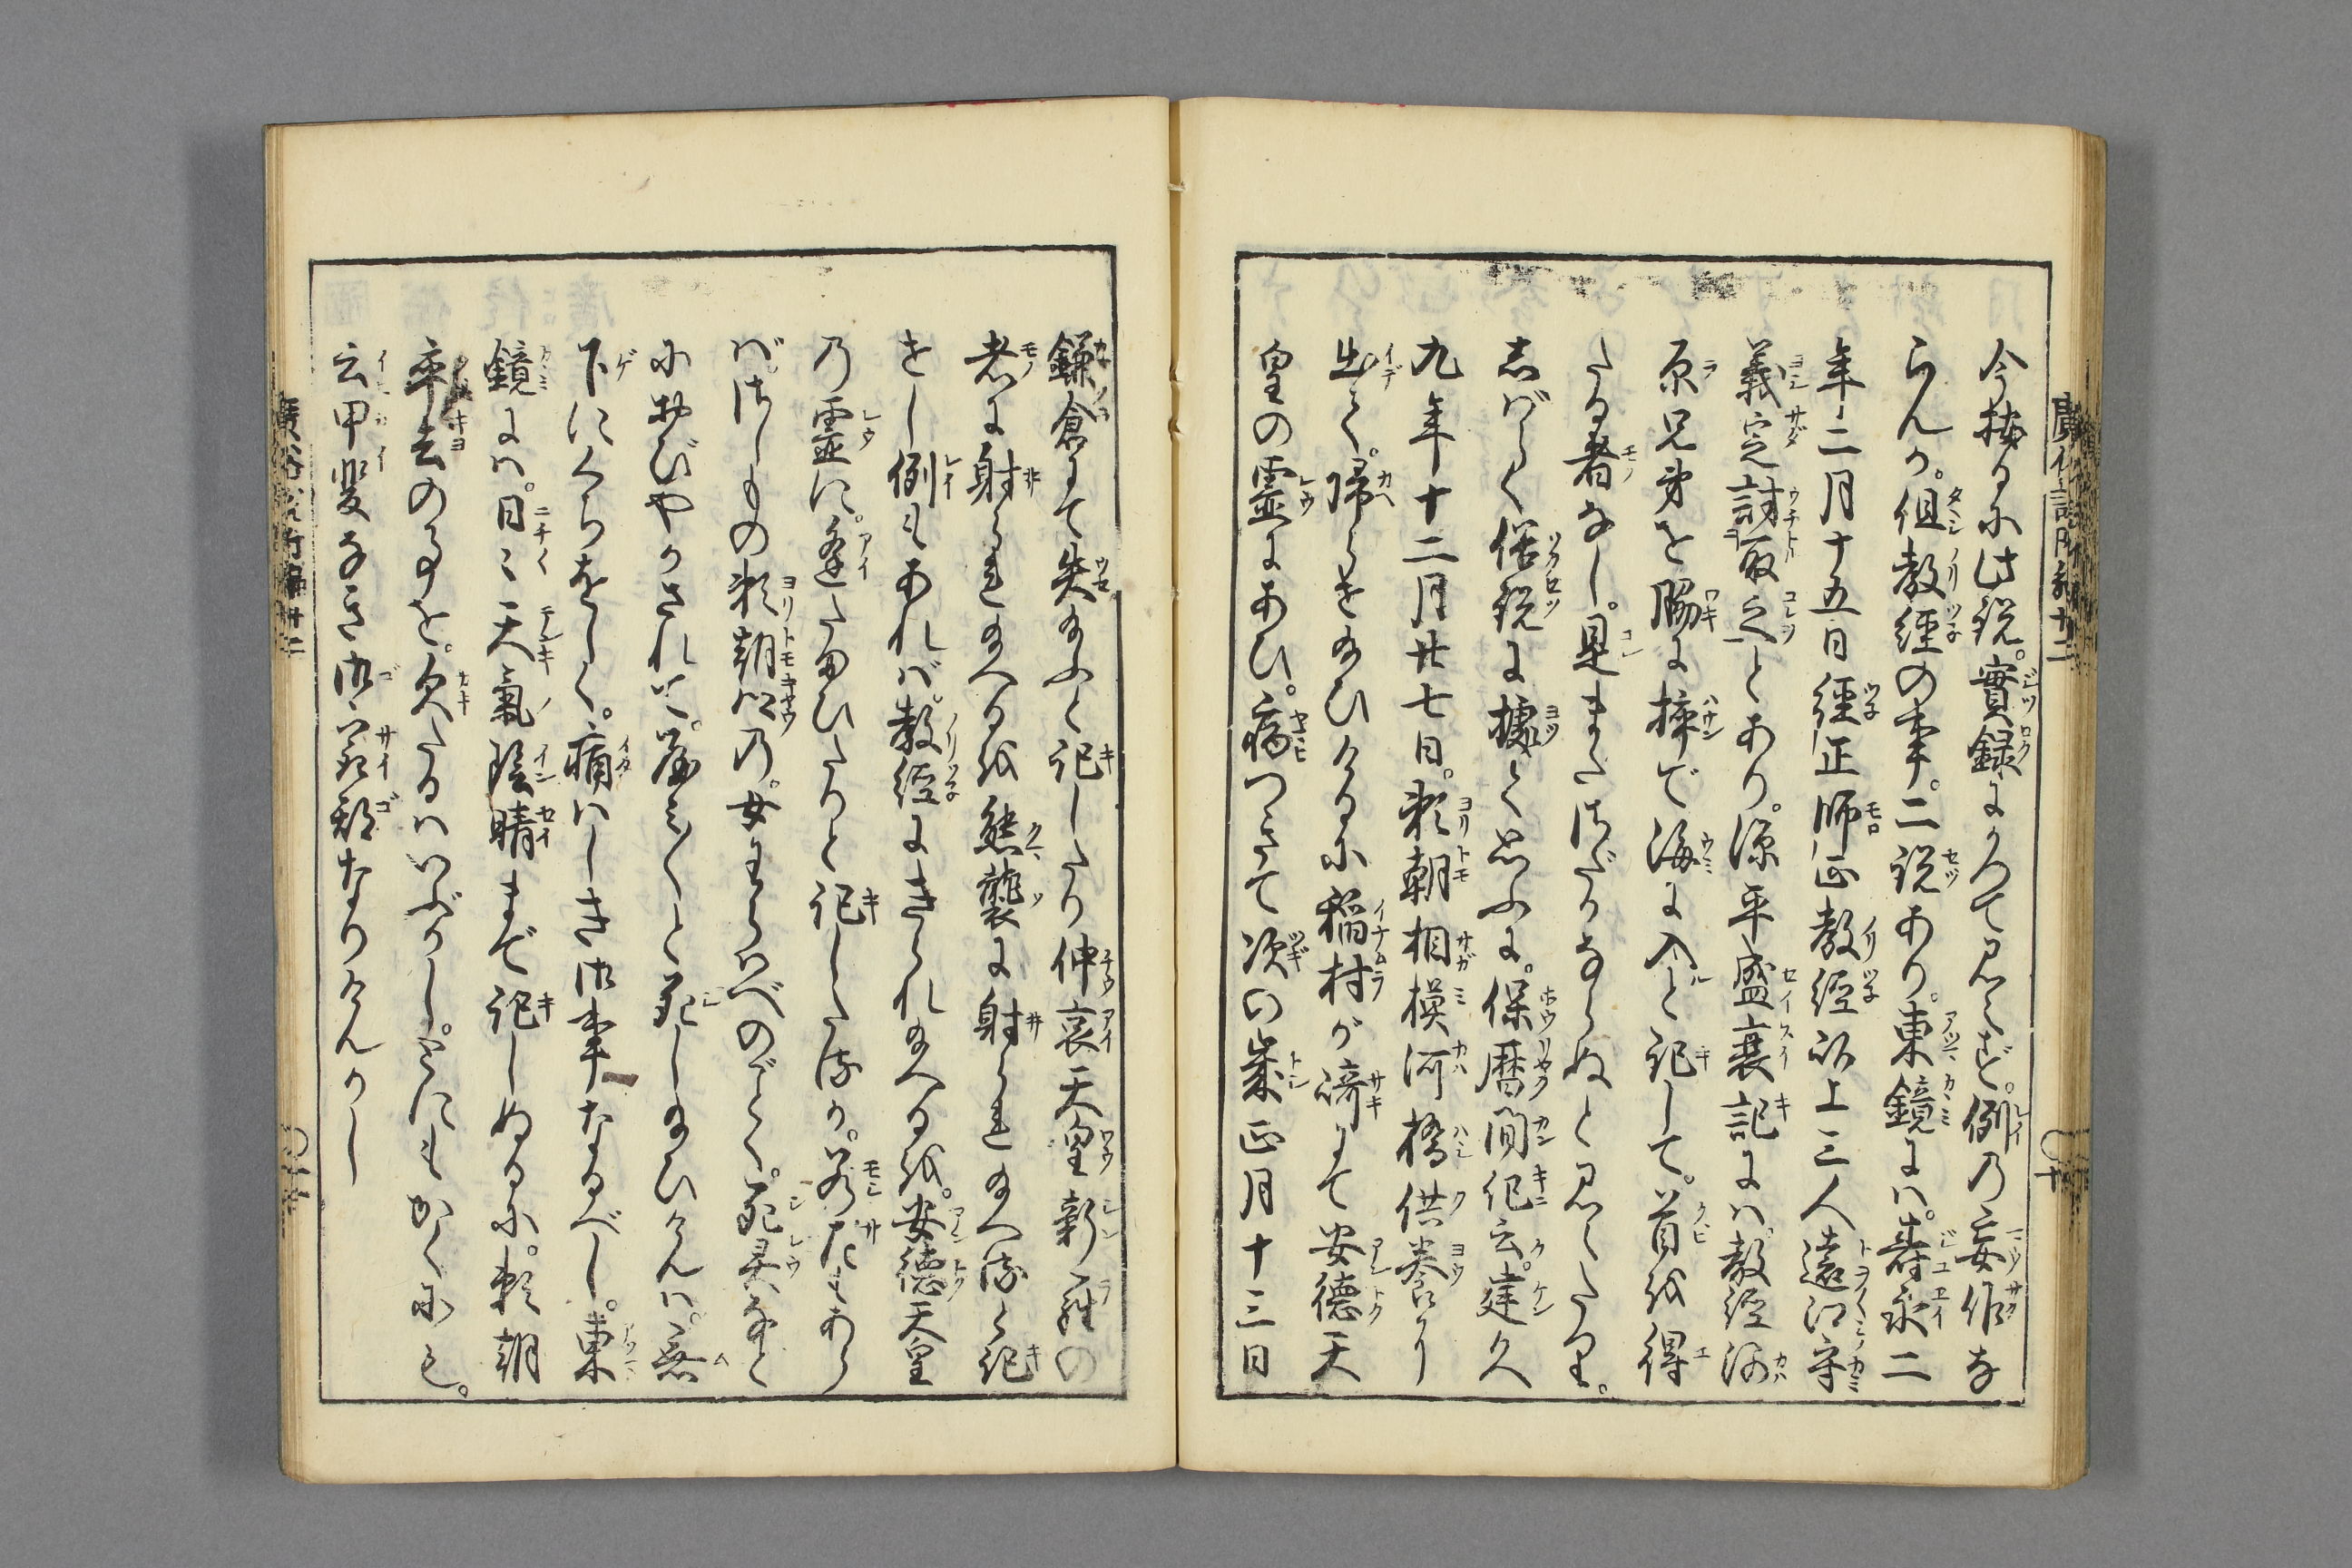 今按るに此説。實録によつて見れど。例の妄作な
らんか。但教經の事。二説あり。東鏡には。壽永二
年二月十五日經正師正教經以上三人遠江守
義定討取之とあり。源平盛衰記には。教經河
原兄弟を脇に挿で海に入と記して。首を得
たる者なし。是まださだかならぬと見へたり。
志ばらく俗説に據て思ふに。保暦間記云。建久
九年十二月廿七日。頼朝相模河橋供養より
出て。歸らせ給ひけるに稲村が﨑にて安徳天
皇の靈にあひ。病つきて次の歳正月十三日
鎌倉にて失給ふと記したり仲哀天皇新羅の
者に射られ給へるを熊襲に射られ給へりと記
せし例もあれば。教經にきられ給へるを。安徳天皇
の靈に。逢たまひたりと記したるか。若さもあら
ば。さしもの頼朝公の。女わらはべのごとく。死霊など
におびやかされて。おめ〳〵と死し給ひけんは。無
下にくちをしく。痛はしき御事なるべし。東
鏡には。日〻天氣陰晴まで記しぬるに。頼朝
卒去の事を。欠たるはいぶかし。とにもかくにも。
云甲斐なき御最期なりけんかし